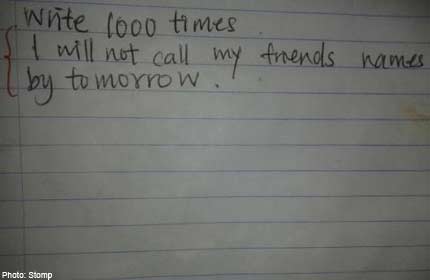 Write 1000 times
I will not call my friends names
by tomorrow.
Photo: Stomp